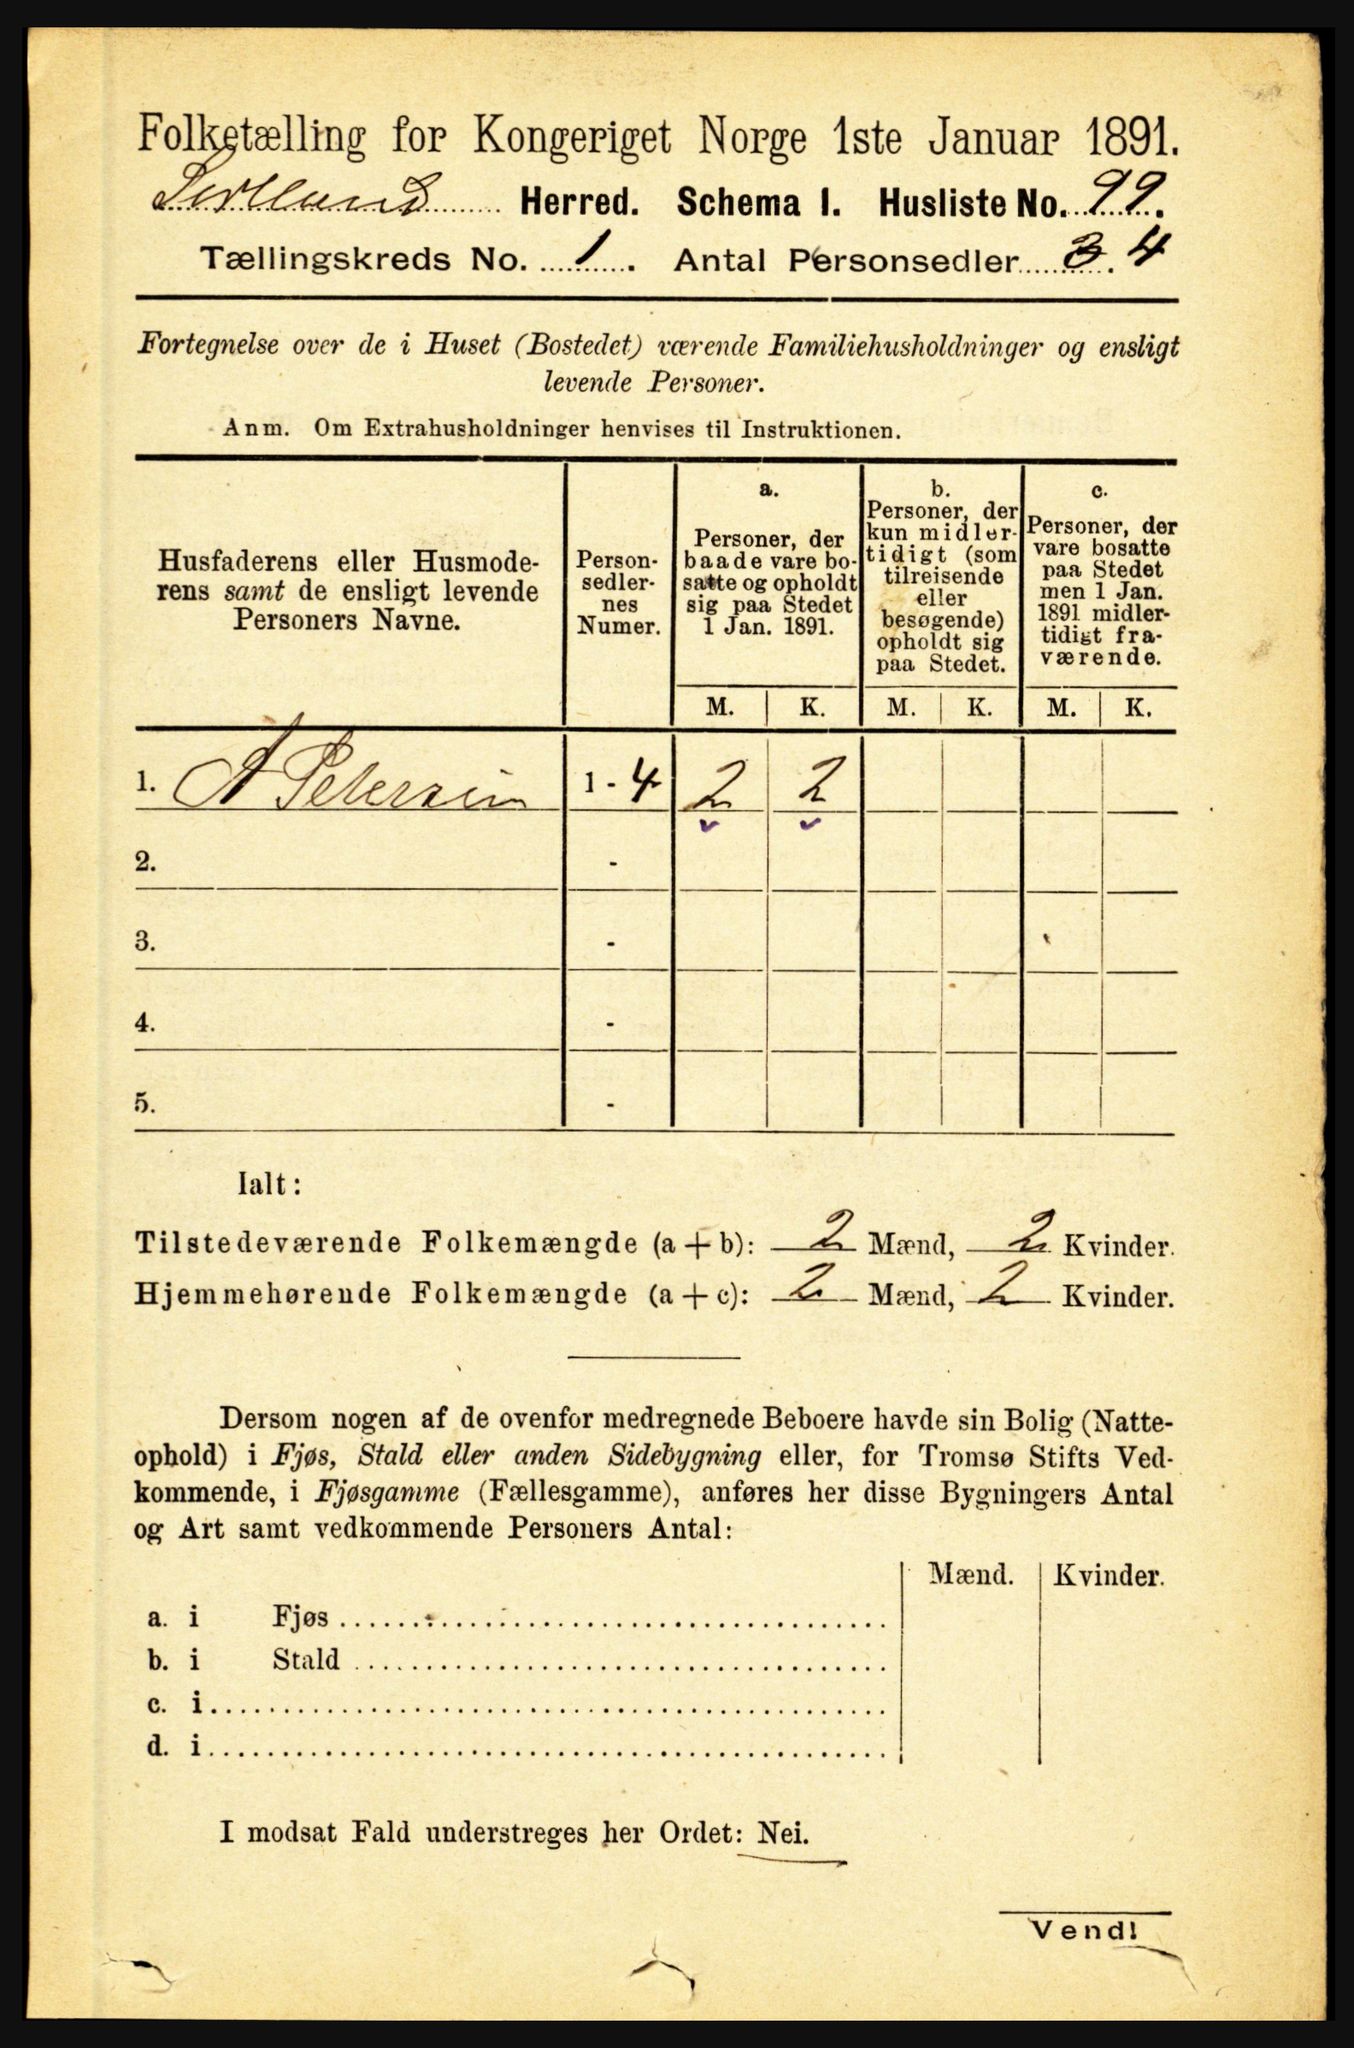 Folketælling for Kongeriget Norge 1ste Januar 1891.
Herred. Schema I. Husliste No. 99.
Tællingskreds No. 1. Antal Personsedler 3. 4
Fortegnelse over de i Huset (Bostedet) værende Familiehusholdninger og ensligt
levende Personer.
Anm. Om Extrahusholdninger henvises til Instruktionen.
Husfaderens eller Husmode-
rens samt de ensligt levende
Personers Navne.
Person-
sedler-
nes
Numer.
a.
Personer, der
baade vare bo-
satte og opholdt
sig paa Stedet
1 Jan. 1891.
b.
Personer, der
kun midler-
tidigt (som
tilreisende
eller
besøgende)
opholdt sig
paa Stedet.
c.
Personer, der
vare bosatte
paa Stedet
men 1 Jan.
1891 midler-
tidigt fra-
værende.
M. K. M. K. M. K.
1. A Petersen 1 - 4 2 2
2. -
3. -
4. -
5. -
Ialt:
Tilstedeværende Folkemængde (a + b): 2 Mænd, 2 Kvinder.
Hjemmehørende Folkemængde (a + c): 2 Mænd, 2 Kvinder.
Dersom nogen af de ovenfor medregnede Beboere havde sin Bolig (Natte-
ophold) i Fjøs, Stald eller anden Sidebygning eller, for Tromsø Stifts Ved-
kommende, i Fjøsgamme (Fællesgamme), anføres her disse Bygningers Antal
og Art samt vedkommende Personers Antal:
Mænd. Kvinder.
a. i Fjøs
b. i Stald
c. i
d. i
I modsat Fald understreges her Ordet: Nei.
Vend!